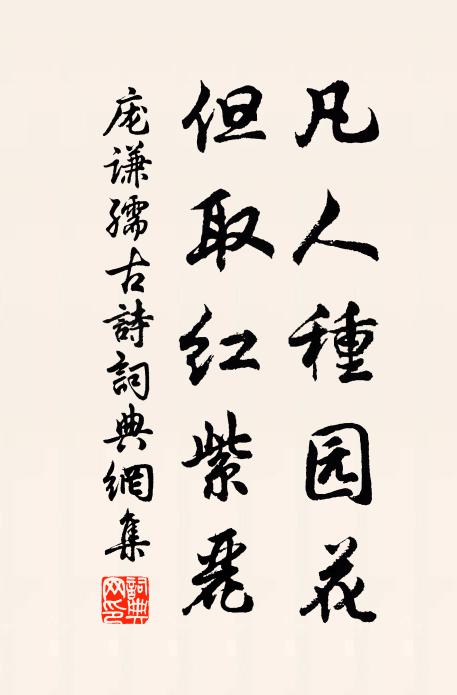 凡人種园花
但取红紫麗
庞谦孺古詩詞典網集
詞典
网印